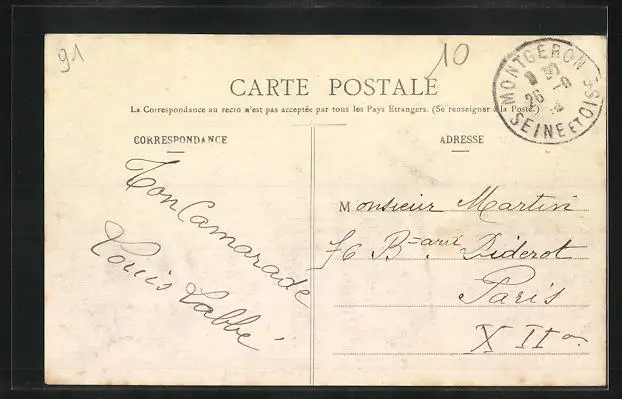 91
10
CARTE POSTALE
La Correspondance au recto n'est pas acceptée par tous les Pays Etrangers. (Se renseigner à la Poste)
MONTGERON
26
SEINE ET OISE
CORRESPONDANCE
ADRESSE
Ton Camarade
Louis Labbé
Monsieur Martin
76 Bard Diderot
Paris
XIIe